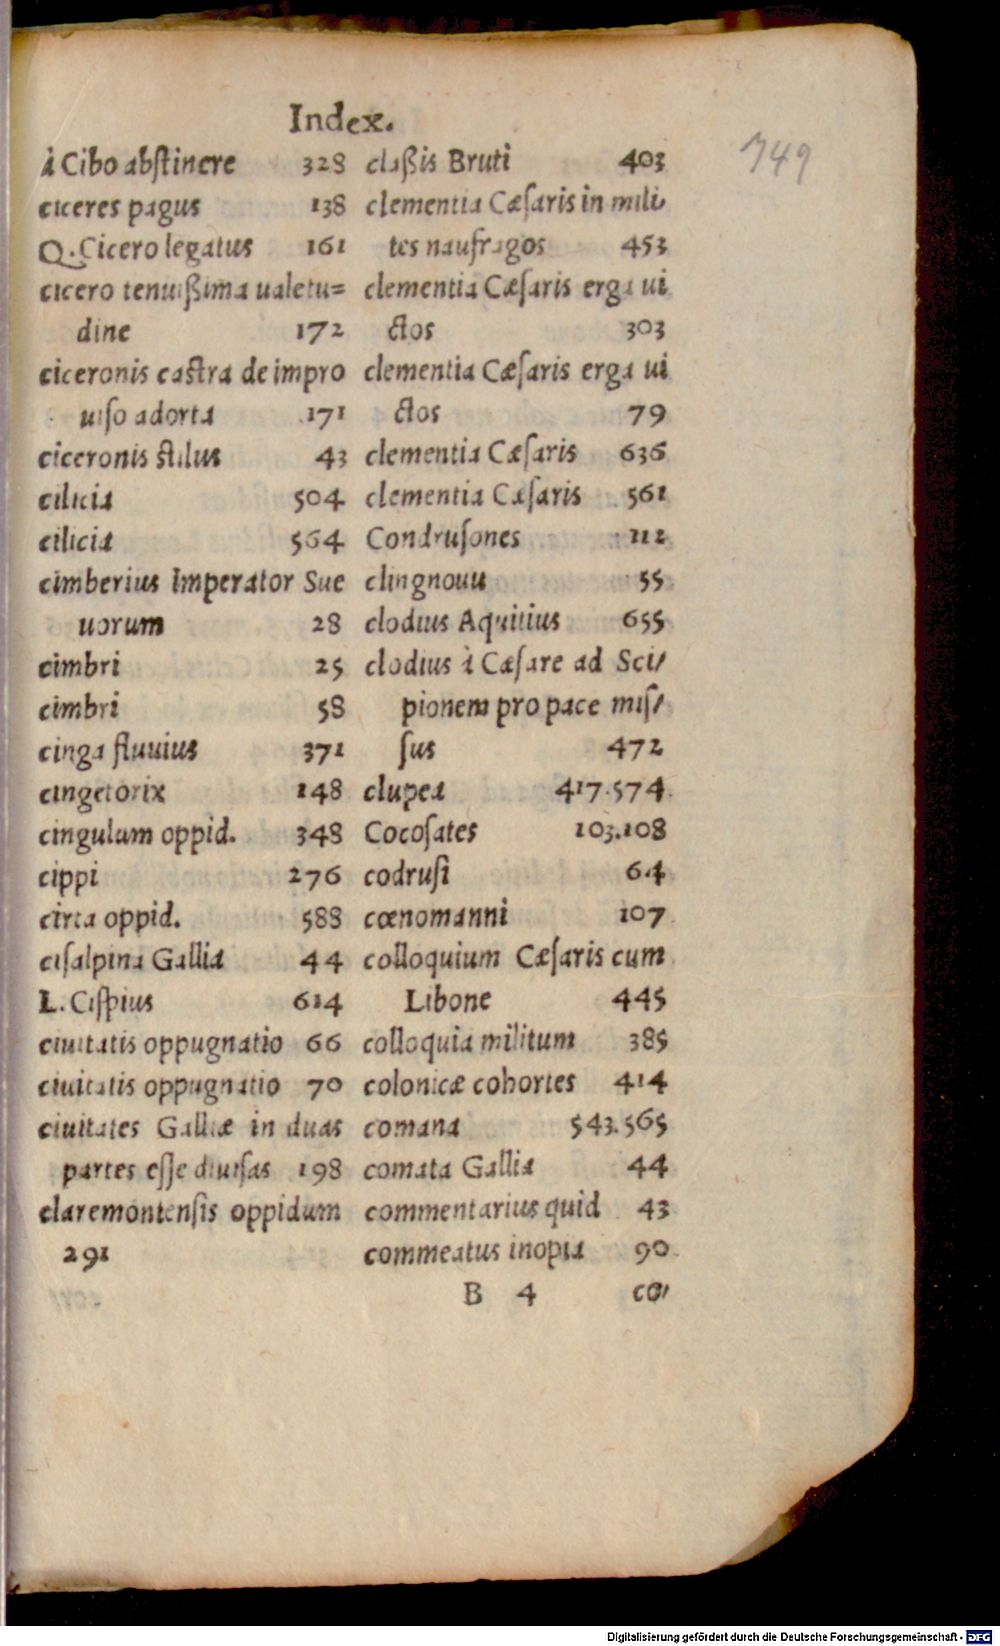 Index.
749
à Cibo abſtinere 328
ciceres pagus 138
Q. Cicero legatus 161
cicero tenuißima ualetu=
dine 172
ciceronis castra de impro
uiſo adorta 171
ciceronis stilus 43
cilicia 504
cilicia 564
cimberius Imperator Sue
uorum 28
cimbri 25
cimbri 58
cinga fluuius 371
cingetorix 148
cingulum oppid. 348
cippi 276
cirta oppid. 588
ciſalpina Gallia 44
L. Ciſpius 614
ciuitatis oppugnatio 66
ciuitatis oppugnatio 70
ciuitates Galliæ in duas
partes eſſe diuiſas 198
claremontenſis oppidum
291
claßis Bruti 403
clementia Cæſaris in mili-
tes naufragos 453
clementia Cæſaris erga ui
ctos 303
clementia Cæſaris erga ui
ctos 79
clementia Cæſaris 636
clementia Cæſaris 561
Condruſones 112
clingnouu 55
clodius Aquitius 655
clodius à Cæſare ad Sci/
pionem pro pace miſ/
ſus 472
clupea 417.574.
Cocoſates 103.108
codruſi 64
cœnomanni 107
colloquium Cæſaris cum
Libone 445
colloquia militum 385
colonicæ cohortes 414
comana 543.565
comata Gallia 44
commentarius quid 43
commeatus inopia 90
B 4 co/
Digitalisierung gefördert durch die Deutsche Forschungsgemeinschaft - DFG